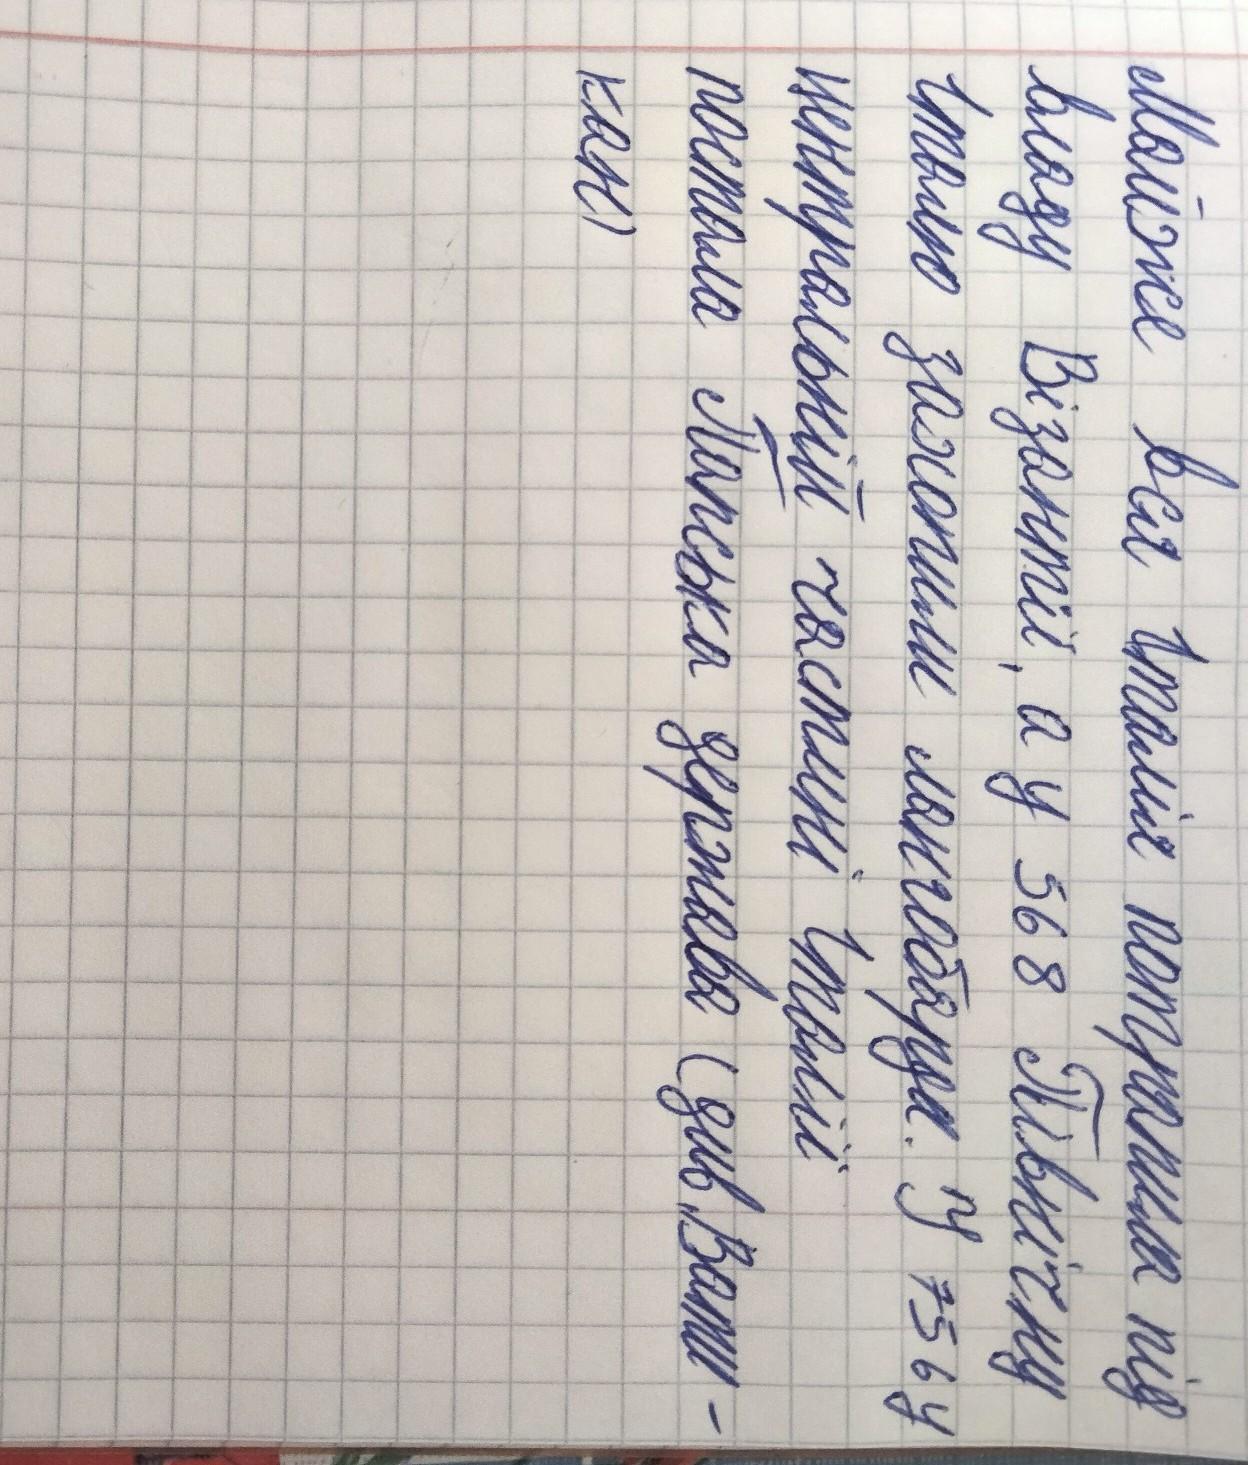 Майже вся Італія потрапила під
владу Візантії, а у 568 Північну
Італію захопили лангобарди. У 756 у
центральній частині Італії
постала Папська держава (див. Вати-
кан)